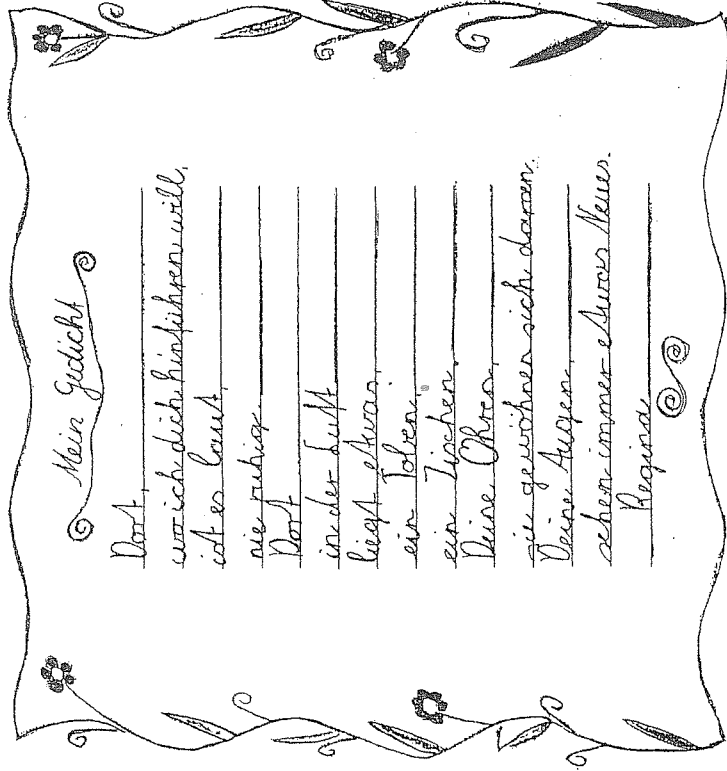 Mein Gedicht
Dort,
wo ich dich hinführen will,
ist es laut,
nie ruhig.
Dort
in der Luft
liegt etwas,
ein Toben,
ein Zischen.
Deine Ohren,
sie gewöhnen sich daran.
Deine Augen,
sehen immer etwas Neues.
Regina